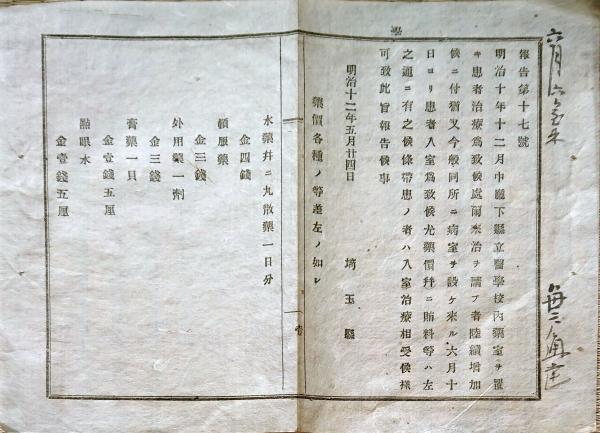 報告第十七號
明治十年十二月中廳下縣立醫學校內藥室ヲ置
キ患者治療爲致候處爾來治ヲ請フ者陸續增加
候ニ付猶又今般同所ニ病室ヲ設ケ來ル六月十
日ヨリ患者入室爲致候尤藥價幷ニ賄料等ハ左
之通ニ有之候條帶患ノ者ハ入室治療相受候樣
可致此旨報告候事
明治十二年五月廿四日
埼玉縣
藥價各種ノ等差左ノ如シ
一 壹
水藥幷ニ丸散藥一日分
金四錢
頓服藥
金三錢
外用藥一劑
金三錢
膏藥一貝
金壹錢五厘
點眼水
金壹錢五厘